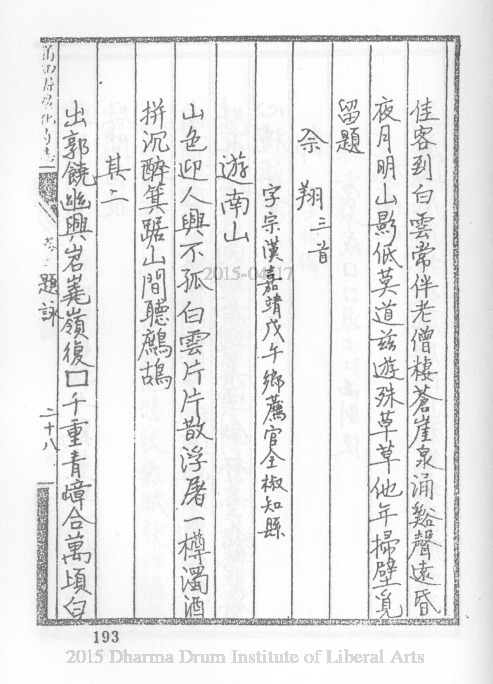 佳客到白雲常伴老僧棲蒼崖泉涌谿聲遠昏
夜月明山影低莫道茲遊殊草草他年掃壁覓
留題
佘翔三首
字宗漢嘉靖戊午鄉薦官全椒知縣
遊南山
山色迎人興不孤白雲片片散浮屠一樽濁酒
拼沉醉箕踞山間聽鷓鴣
其二
出郭饒幽興岩嶤嶺復口千重青嶂合萬頃白
題詠
二十八
193
2015-04-17
2015 Dharma Drum Institute of Liberal Arts